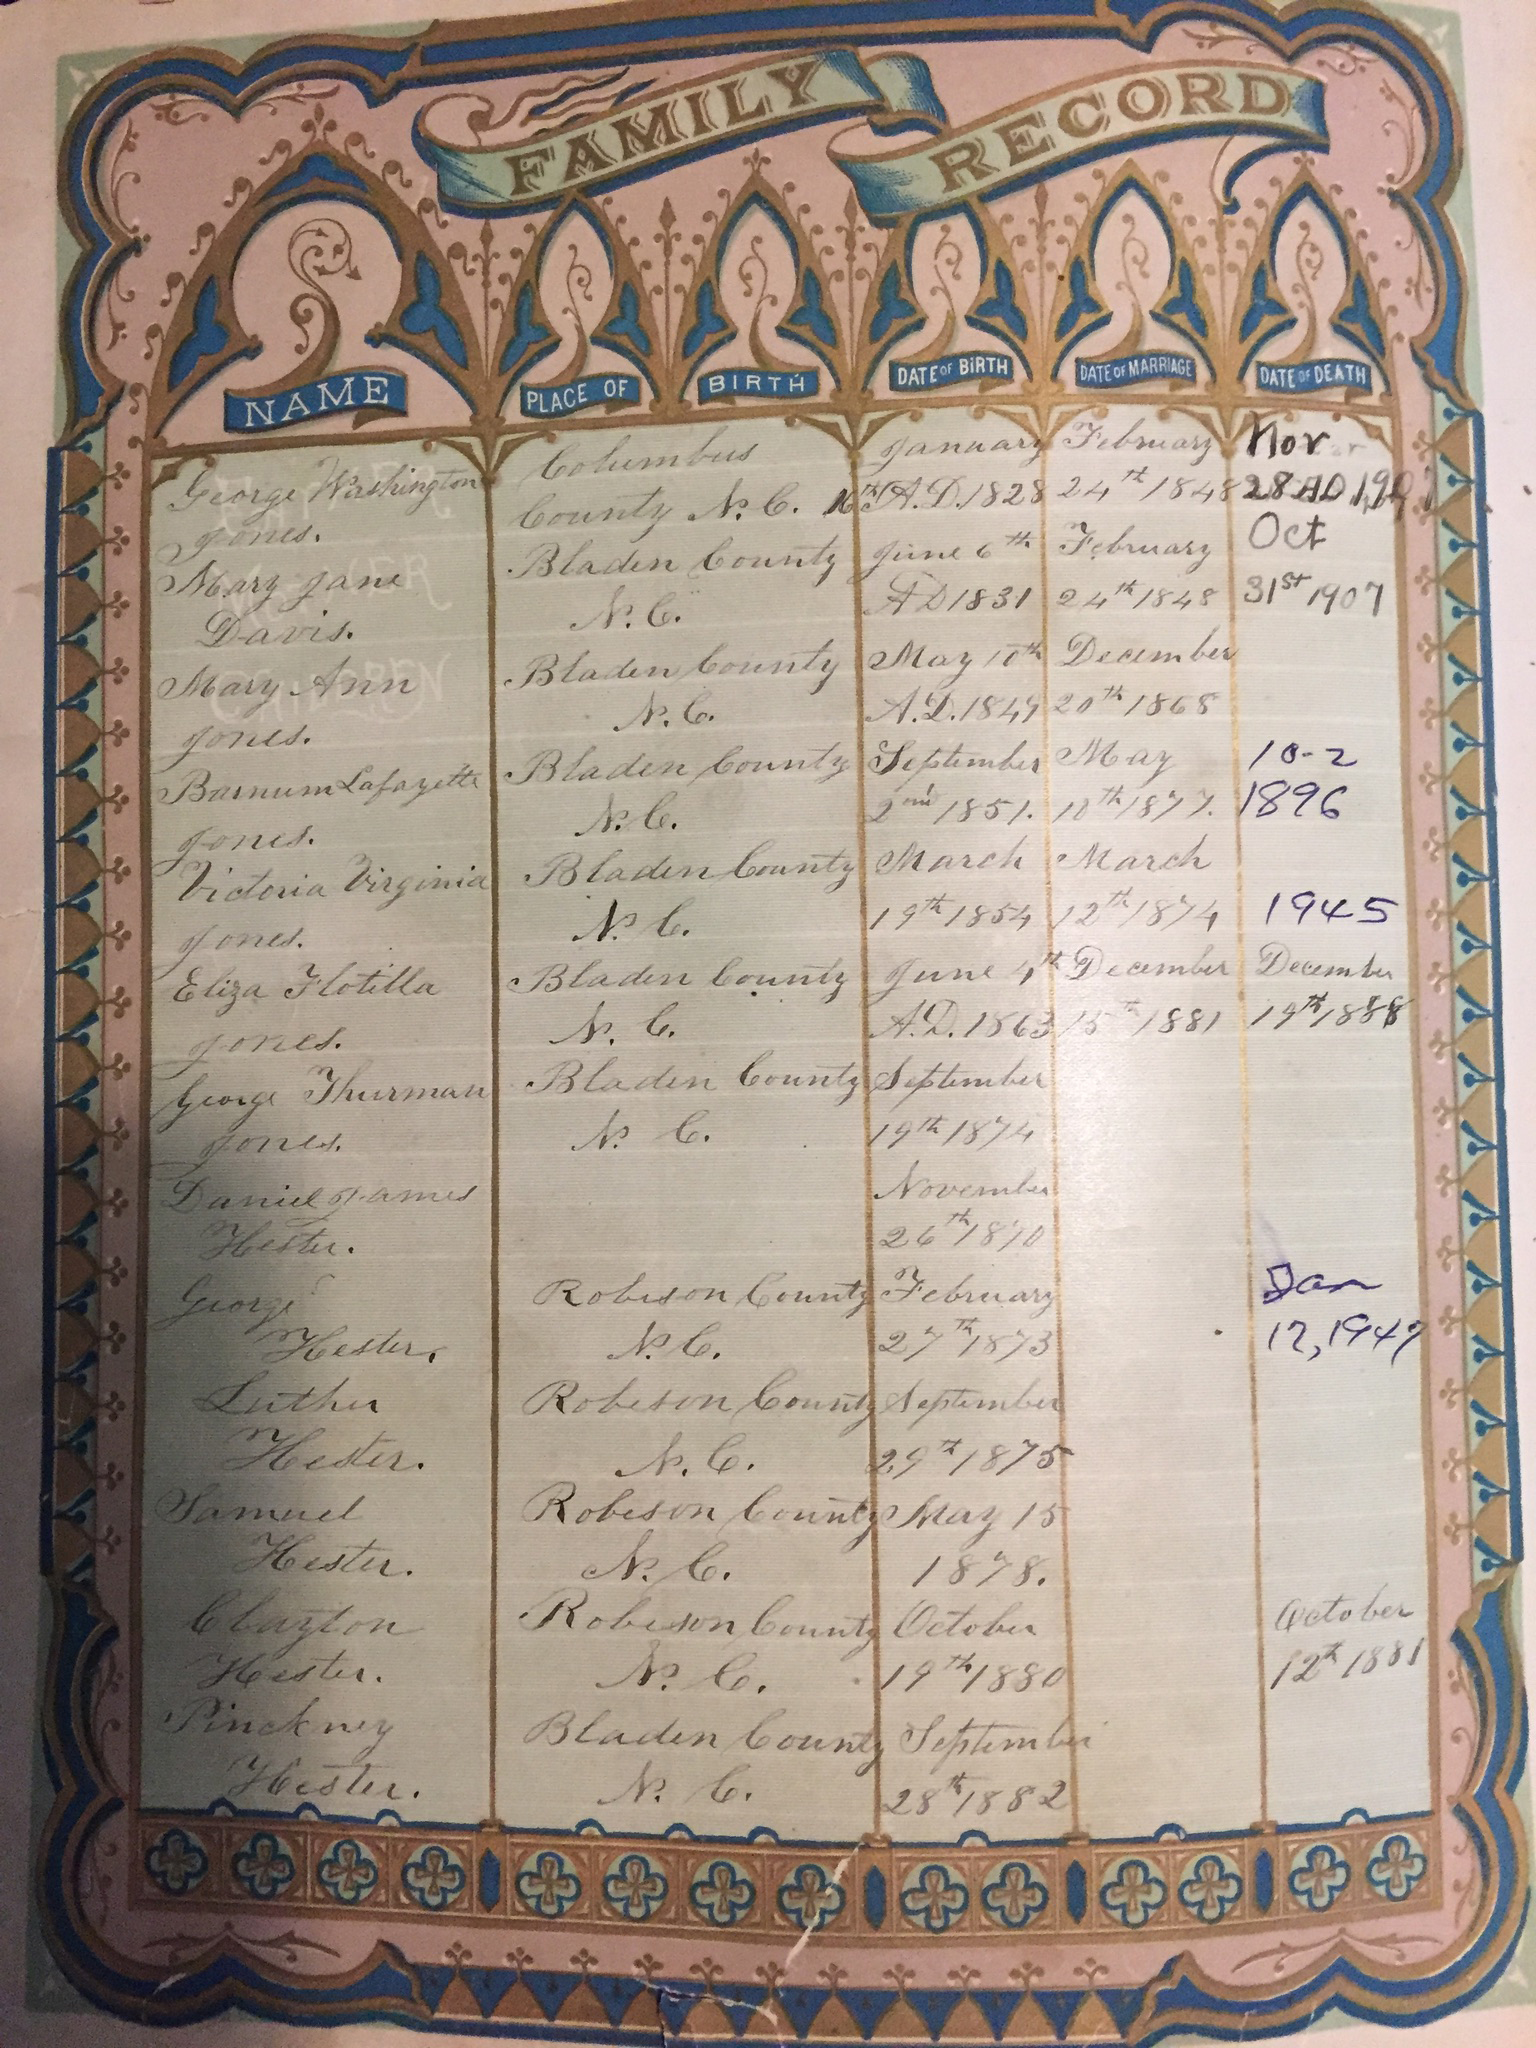 FAMILY RECORD
NAME PLACE OF BIRTH DATE OF BIRTH DATE OF MARRIAGE DATE OF DEATH
Columbus January February Nov
George Washington County N.C. 16th A.D. 1828 24th 1848 28 AD
Jones. Bladen County June 6th February Oct
Mary Jane N.C. A D 1831 24th 1848 31st 1907
Davis.
Mary Ann Bladen County May 10th December
Jones. N.C. A.D. 1849 20th 1868
Barnum Lafayette Bladen County September May 10-2
Jones. N.C. 2nd 1851. 10th 1877. 1896
Victoria Virginia Bladen County March March
Jones. N.C. 19th 1854 12th 1874 1945
Eliza Flotilla Bladen County June 4th December December
Jones. N.C. A.D. 1863 15th 1881 19th 1888
George Thurman Bladen County September
Jones. N.C. 19th 1874
Daniel James November
Hester. 26th 1870
George Robeson County February Jan
Hester. N.C. 27th 1873 12, 1947
Luther Robeson County September
Hester. N.C. 29th 1875
Samuel Robeson County May 15
Hester. N.C. 1878.
Clayton Robeson County October October
Hester. N.C. 19th 1880 12th 1881
Pinckney Bladen County September
Hester. N.C. 28th 1882